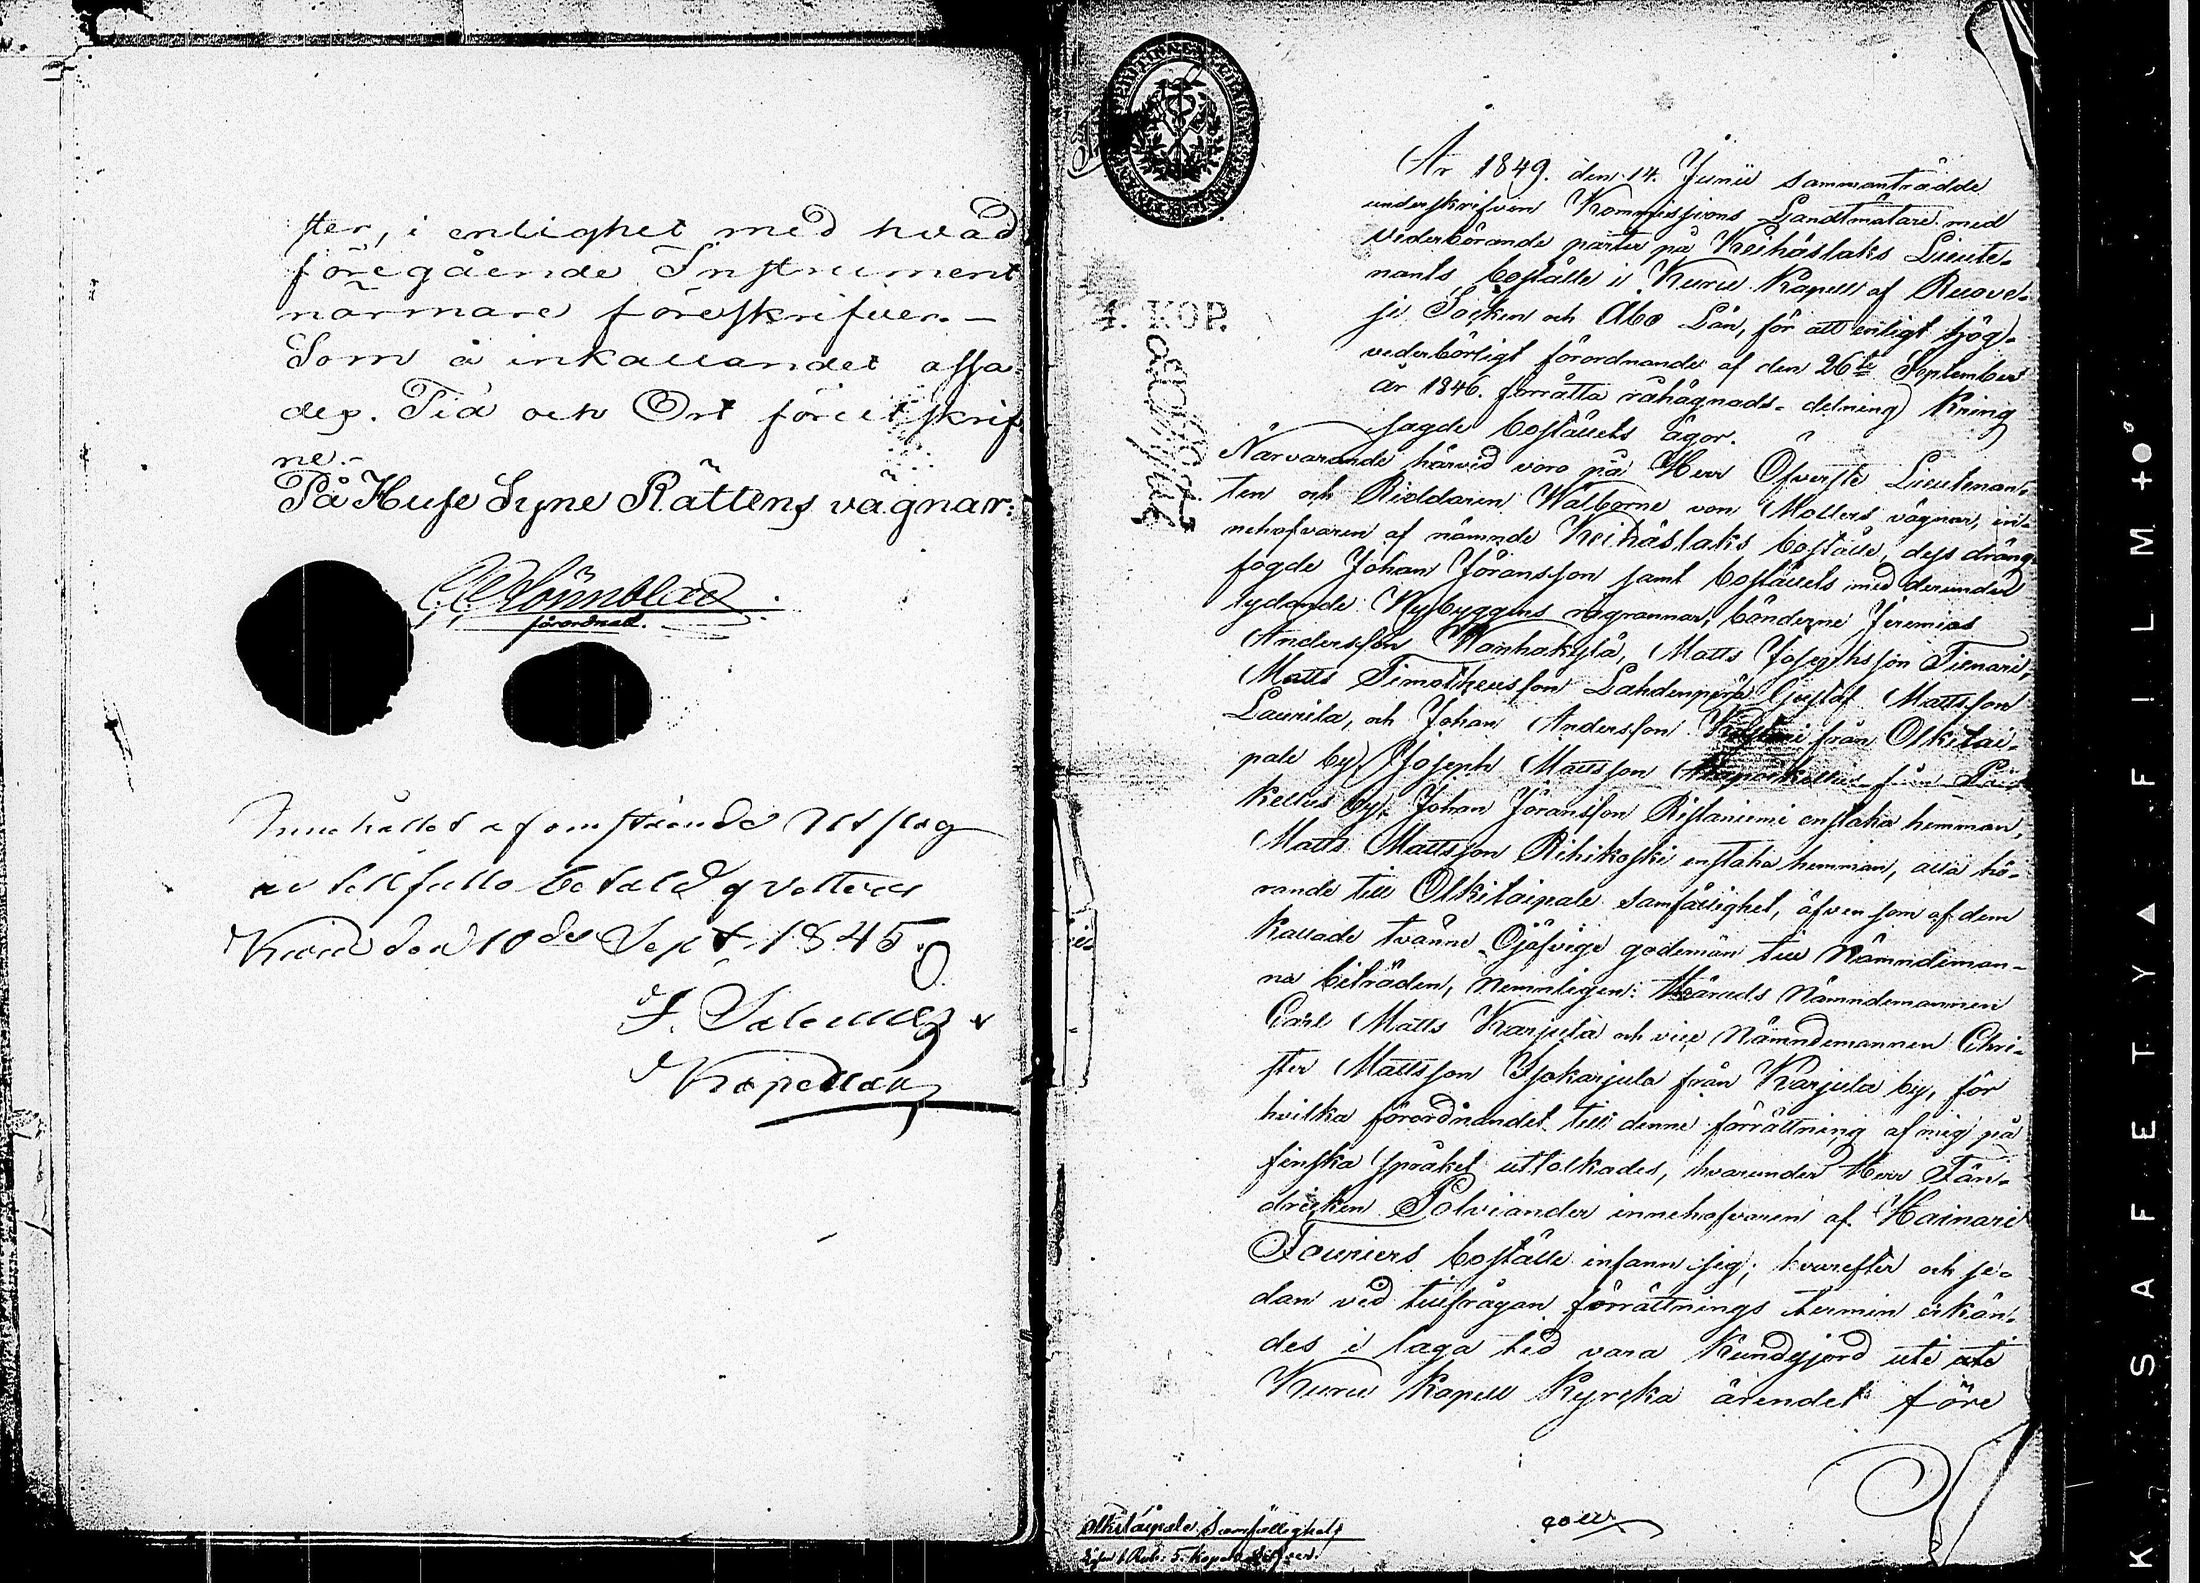 ster, i enlighet med hvad
föregående Instrument
närmare föreskrifver. —
Som å inkallandet affa-
des. Tid och Ort föreskrif
ne.
På Huse Syne Rättens vägnar:
förordnad.
Innehållet af omstående Utslag
till fullo betald qvitteras
Kuru den 10de Sept. 1845.
Kapellan
År 1849. den 14. Junii sammanträdde
underskrifven Kommissions Landtmätare med
Vederbörande parter på Keihäslaks Lieute-
nants boställe i Kuru Kapell af Ruove-
si Socken och Åbo Län, för att enligt hög-
vederbörligt förordnande af den 26te September
år 1846. förrätta råhägnads-delning kring
sagde boställets ägor.
4. KOP.
Närvarande härvid voro på Herr Öfverste Lieutenan-
ten och Riddaren Walborne von Mollers vägnar, in-
nehafvaren af nämnde Keihäslaks boställe, dess dräng-
fogde Johan Jöransson samt boställets med derunder
lydande Nybyggens rågrannar, bönderne Jeremias
Andersson Wanhakylä, Matts Josephsson Tienari,
Matts Timotheusson Lahdenperä Gustaf Mattsson
Laurila, och Johan Andersson från Olkitai-
pale by, Joseph Mattsson från Päis
kellus by, Johan Jöransson Ristaniemi enstaka hemman,
Matts Mattsson Rihikoski enstaka hemman, alla hö-
rande till Olkitaipale Samfällighet, äfvensom af dem
kallade tvänne Ojäfvige godemän till Nämndeman-
na biträden, Nemnligen: Härads Nämndemannen
Carl Matts Karjula och vice Nämndemannen Chri-
ster Mattsson Isokarjula från Karjula by, för
hvilka förordnandet till denne förrättning af mig på
finska språket uttolkades, hvarunder Herr Fän-
dricken Polviander innehafvaren af Hainari
Fouriers boställe infann sig; hvarefter och se-
dan vid tillfrågan förrättnings termin erkän-
des i laga tid vara kundgjord uti uti
Kuru Kapell Kyrcka ärendet före
Olkitaipale Samfällighets